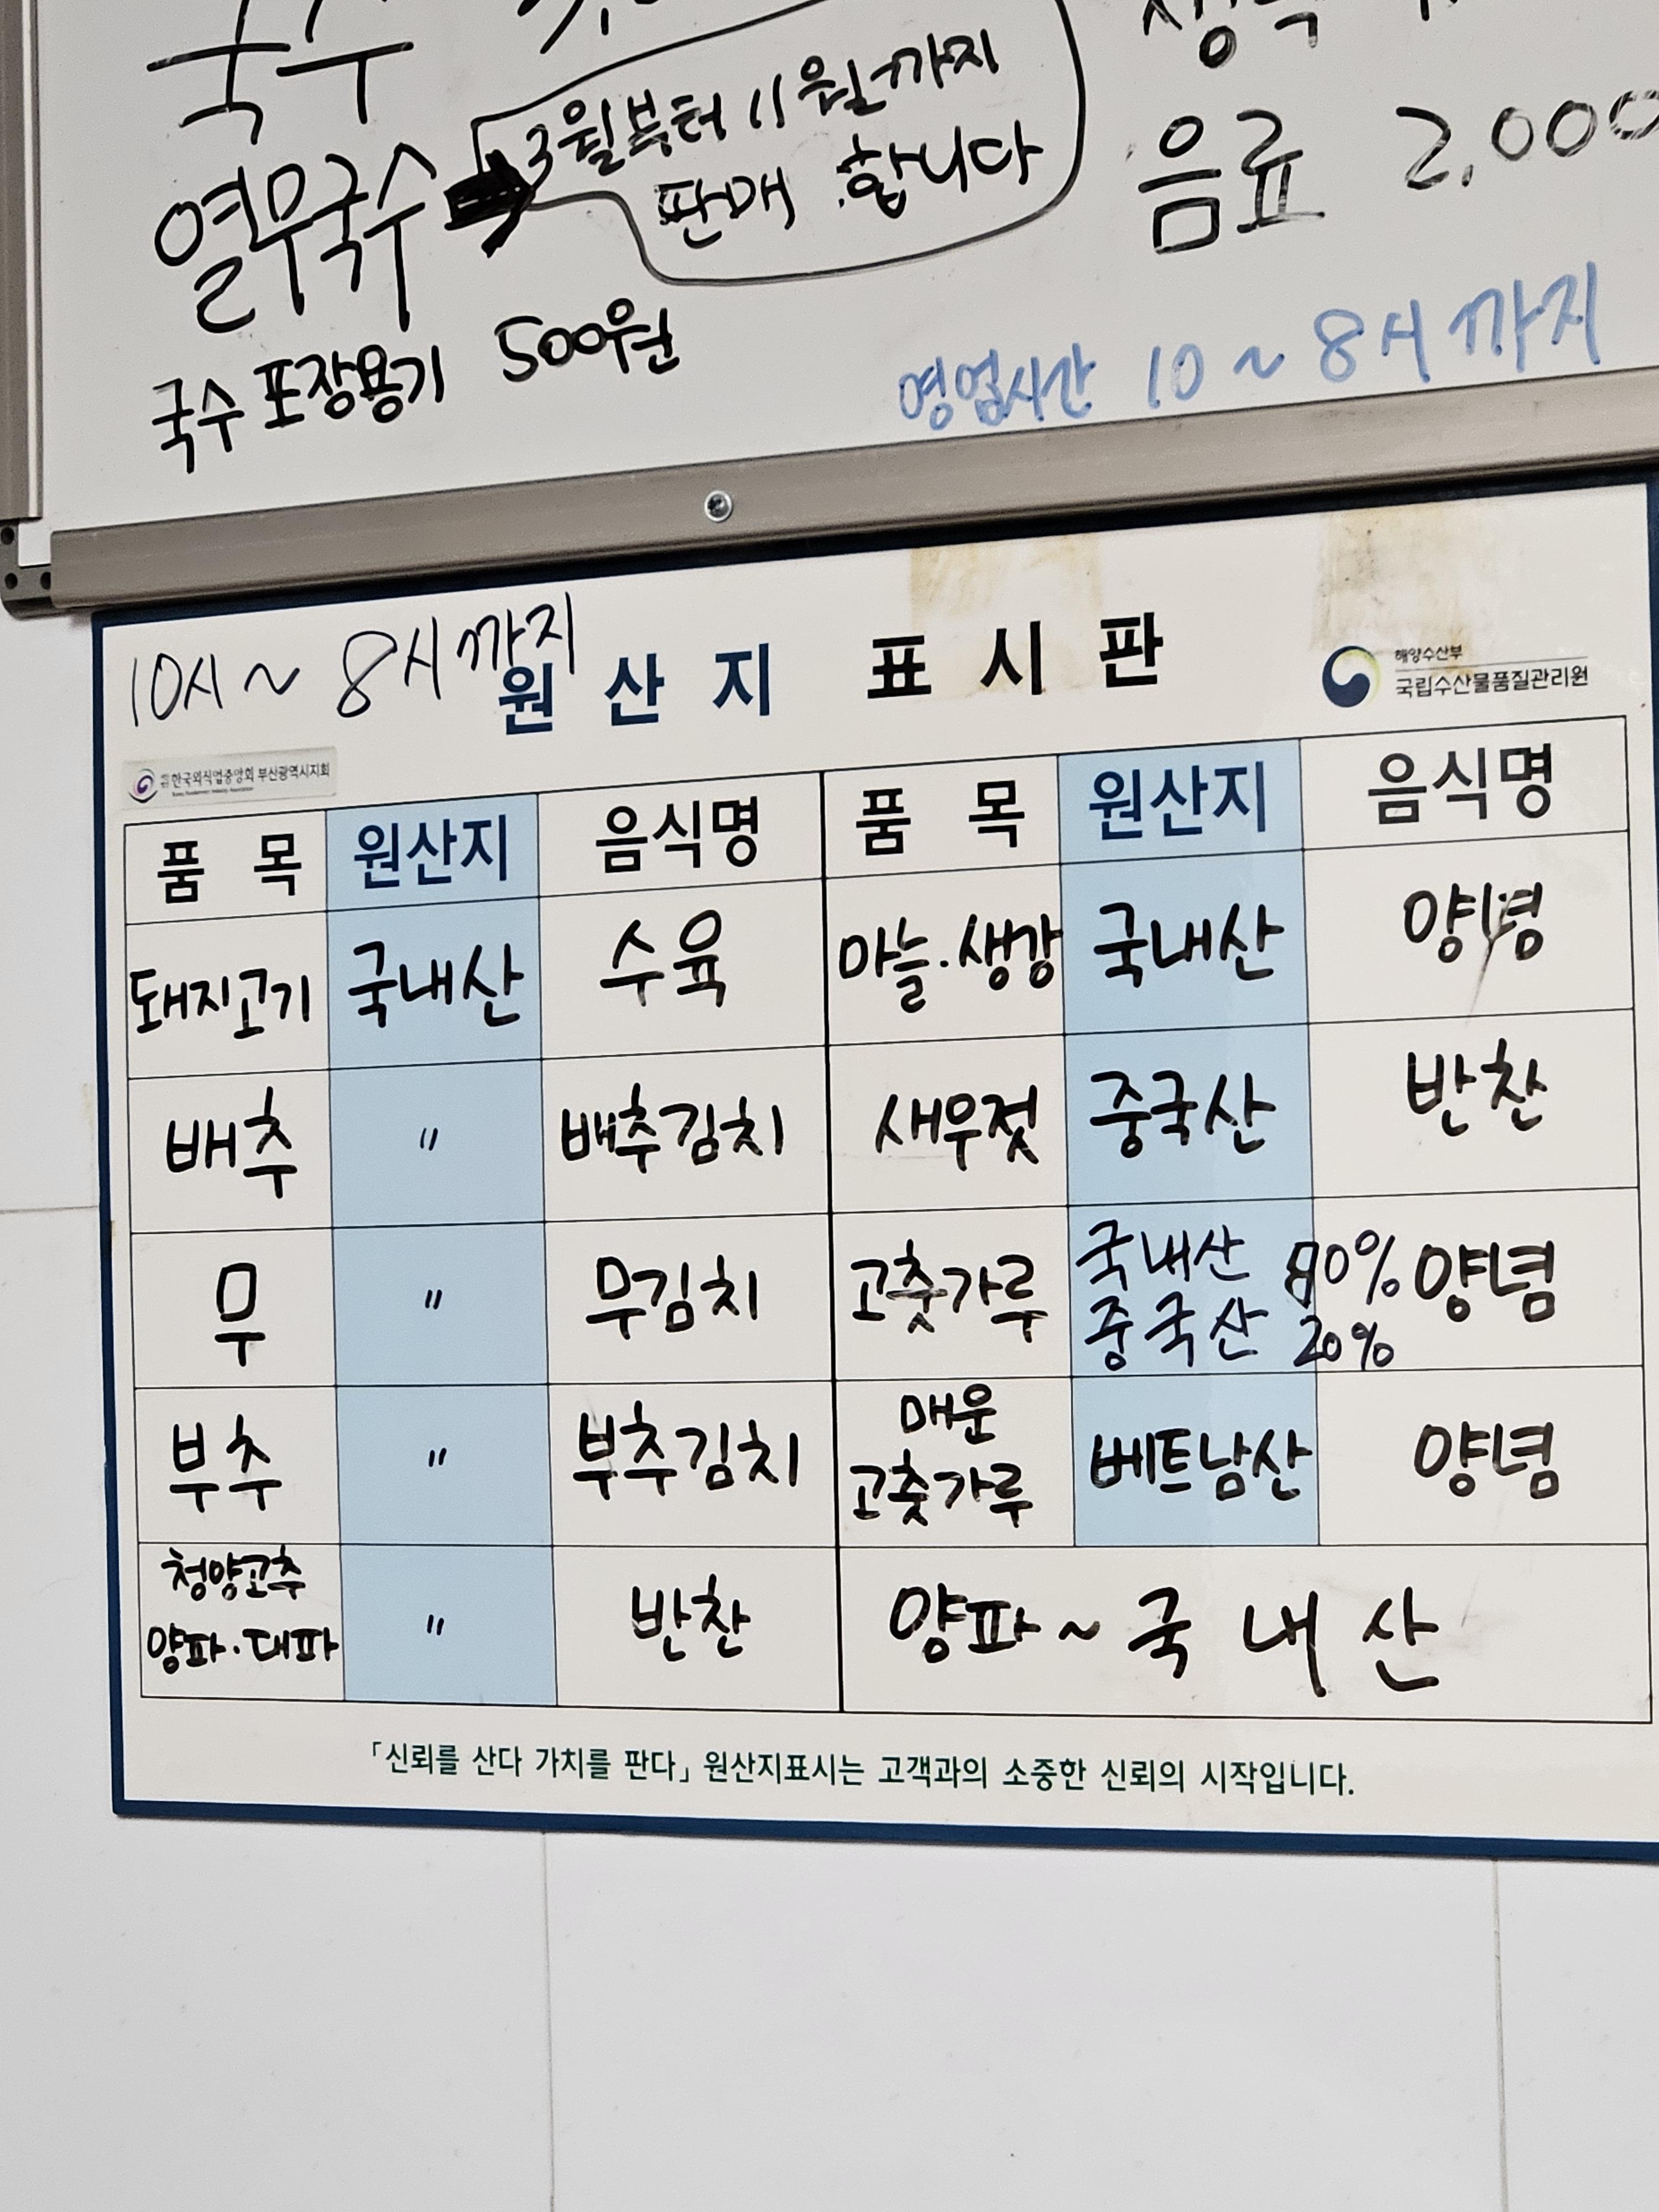 국수
열무국수
3월부터 11월까지
판매 합니다
국수 포장용기 500원
음료 2,000
영업시간 10 ~ 8시까지
10시 ~ 8시까지
원산지 표시판
해양수산부
국립수산물품질관리원
한국외식업중앙회 부산광역시지회
품목 원산지 음식명 품목 원산지 음식명
돼지고기 국내산 수육 마늘·생강 국내산 양념
배추 〃 배추김치 새우젓 중국산 반찬
무 〃 무김치 고춧가루 국내산 80% 양념
중국산 20%
부추 〃 부추김치 매운 고춧가루 베트남산 양념
청양고추
양파·대파 〃 반찬 양파~국내산
「신뢰를 산다 가치를 판다」 원산지표시는 고객과의 소중한 신뢰의 시작입니다.